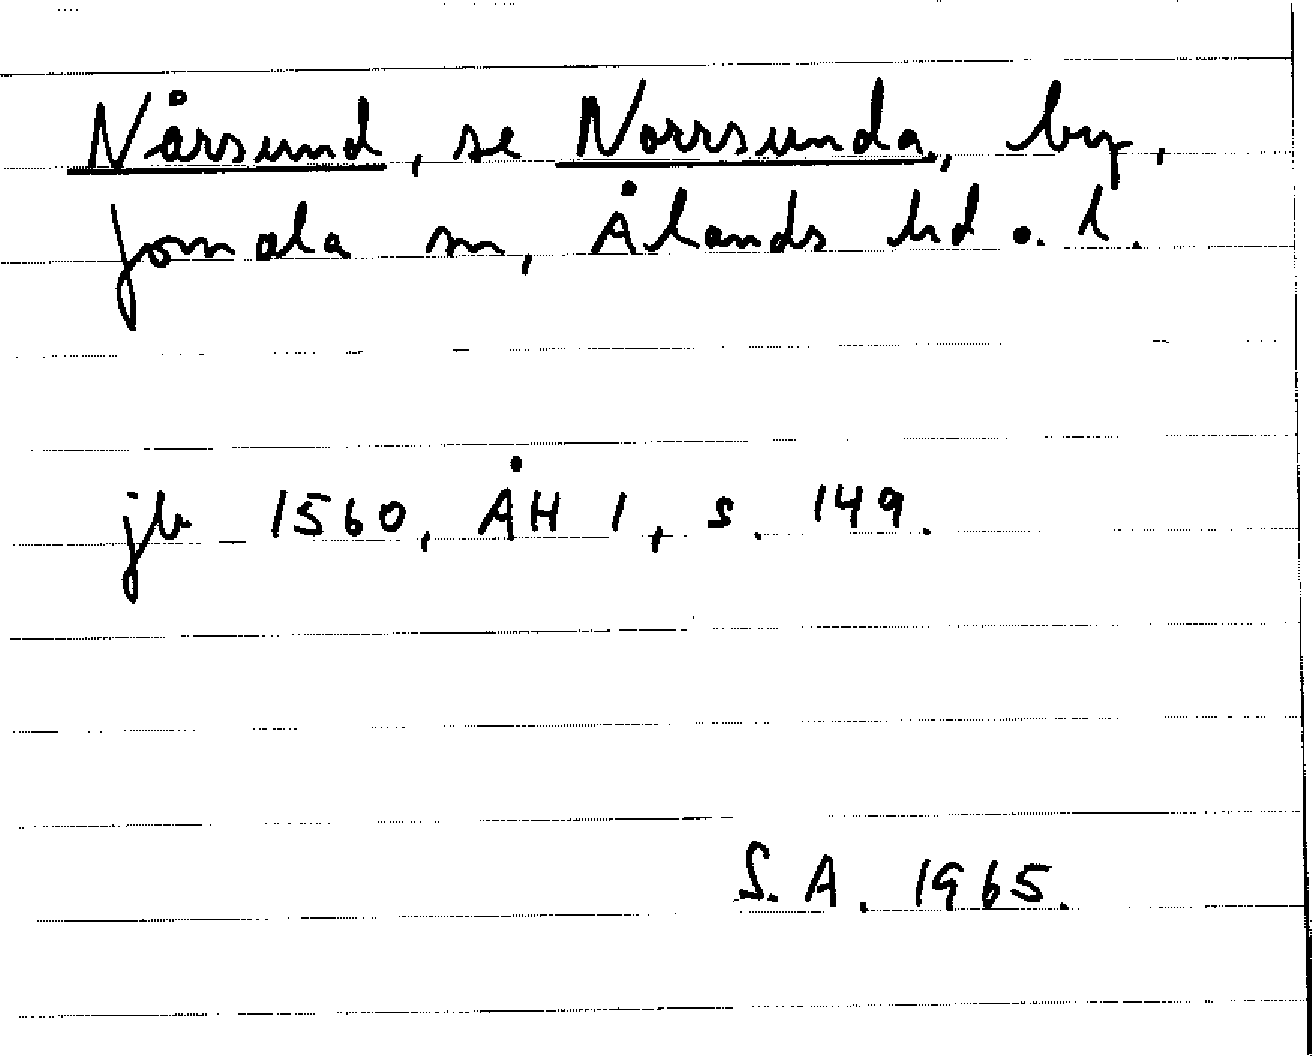 Nårsund, se Norrsunda, by,
Jomala sn, Ålands hd o. l.
jb 1560, ÅH 1, s. 149.
S. A. 1965.